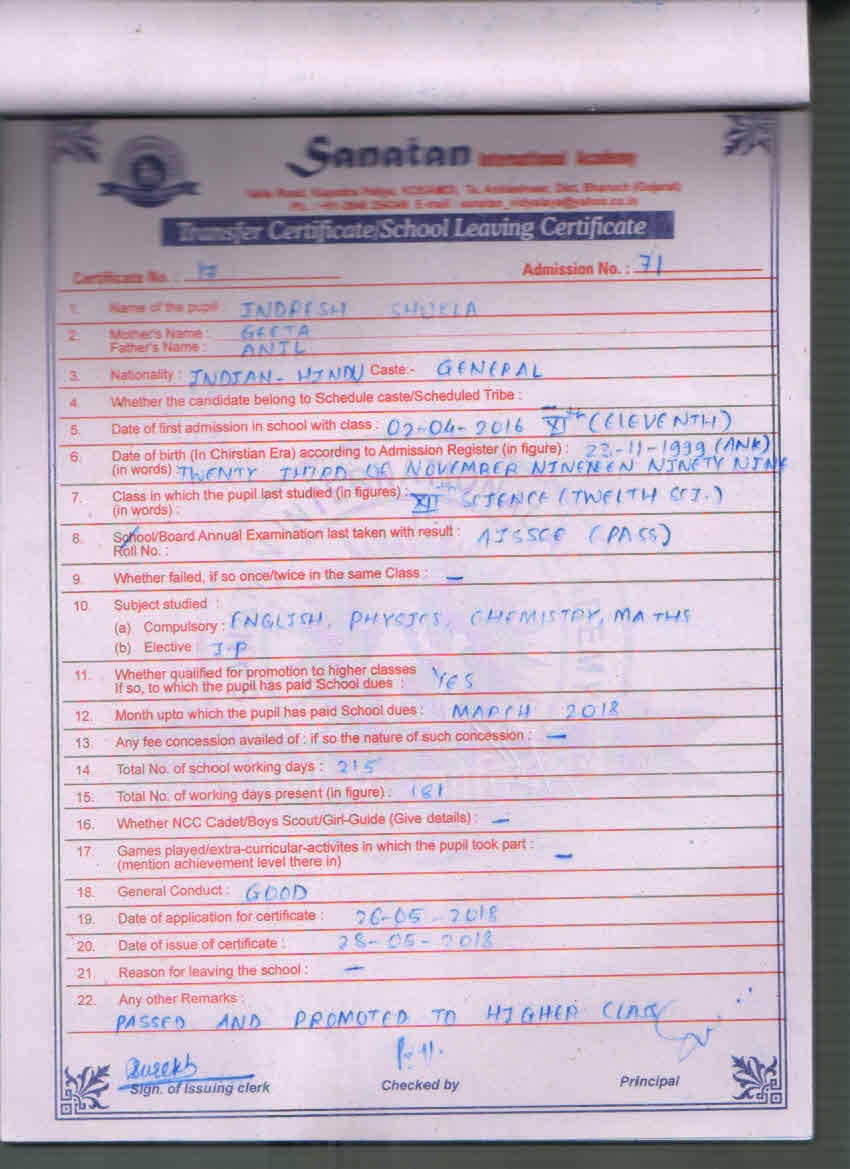 Sanatan International Academy
Transfer Certificate/School Leaving Certificate
Certificate No. : 17 Admission No. : 71
1. Name of the pupil : INDRESH SHUKLA
2. Mother's Name : GEETA
Father's Name : ANIL
3. Nationality : INDIAN - HINDU Caste:- GENERAL
4. Whether the candidate belong to Schedule caste/Scheduled Tribe : —
5. Date of first admission in school with class : 02-04-2016 XIth (ELEVENTH)
6. Date of birth (In Chirstian Era) according to Admission Register (in figure) : 23-11-1999 (ANK)
(in words) TWENTY THIRD OF NOVEMBER NINENEEN NINETY NINE
7. Class in which the pupil last studied (in figures) : XIIth SCIENCE (TWELTH SCI.)
(in words) :
8. School/Board Annual Examination last taken with result : AISSCE (PASS)
Roll No. :
9. Whether failed, if so once/twice in the same Class : —
10. Subject studied :
(a) Compulsory : ENGLISH, PHYSICS, CHEMISTRY, MATHS
(b) Elective : I.P
11. Whether qualified for promotion to higher classes YES
If so, to which the pupil has paid School dues :
12. Month upto which the pupil has paid School dues : MARCH 2018
13. Any fee concession availed of : if so the nature of such concession : —
14. Total No. of school working days : 215
15. Total No. of working days present (in figure) : 161
16. Whether NCC Cadet/Boys Scout/Girl-Guide (Give details) : —
17. Games played/extra-curricular-activites in which the pupil took part :
(mention achievement level there in) —
18. General Conduct : GOOD
19. Date of application for certificate : 26-05-2018
20. Date of issue of certificate : 28-05-2018
21. Reason for leaving the school : —
22. Any other Remarks :
PASSED AND PROMOTED TO HIGHER CLASS
Surekh
Sign. of Issuing clerk Checked by Principal